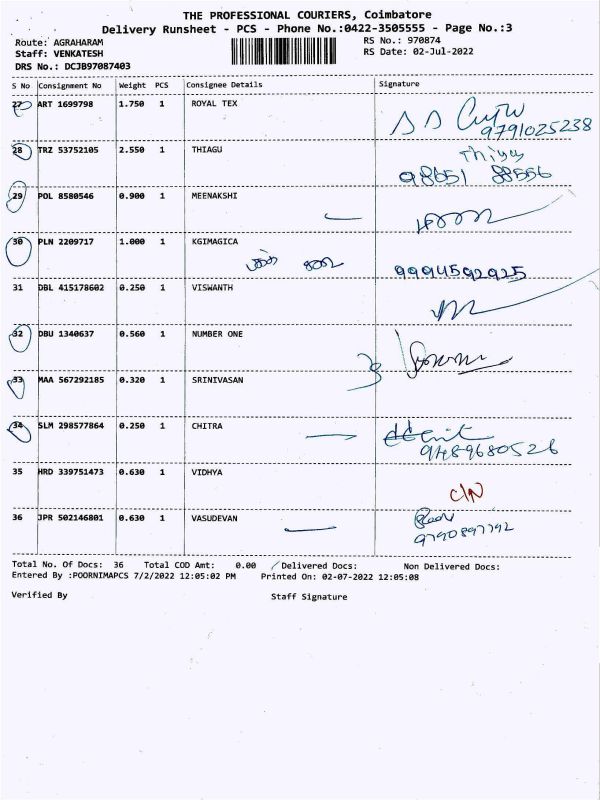 THE PROFESSIONAL COURIERS, Coimbatore
Delivery Runsheet - PCS - Phone No.:0422-3505555 - Page No.:3
Route: AGRAHARAM RS No.: 970874
Staff: VENKATESH RS Date: 02-Jul-2022
DRS No.: DCJB97087403
S No Consignment No Weight PCS Consignee Details Signature
27 ART 1699798 1.750 1 ROYAL TEX
9791025238
28 TRZ 53752105 2.550 1 THIAGU Thiyu
98651 88556
29 POL 8580546 0.900 1 MEENAKSHI
30 PLN 2209717 1.000 1 KGIMAGICA
9994592925
31 DBL 415178602 0.250 1 VISWANTH
32 DBU 1340637 0.560 1 NUMBER ONE
33 MAA 567292185 0.320 1 SRINIVASAN
34 SLM 298577864 0.250 1 CHITRA
9489680526
35 HRD 339751473 0.630 1 VIDHYA
C/N
36 JPR 502146801 0.630 1 VASUDEVAN
9790897792
Total No. Of Docs: 36 Total COD Amt: 0.00 Delivered Docs: Non Delivered Docs:
Entered By :POORNIMAPCS 7/2/2022 12:05:02 PM Printed On: 02-07-2022 12:05:08
Verified By Staff Signature